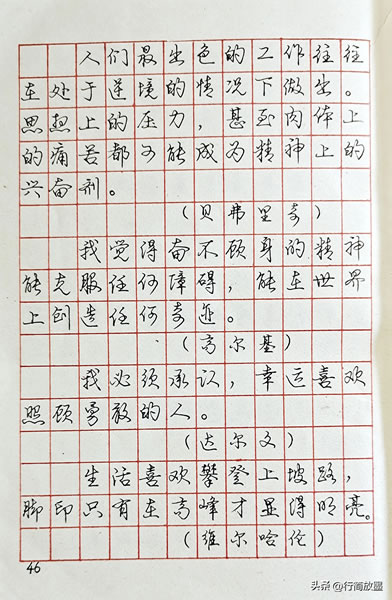 人们最出色的工作往往
在处于逆境的情况下做出。
思想上的压力，甚至肉体上
的痛苦都可能成为精神上的
兴奋剂。
（贝弗里奇）
我觉得奋不顾身的精神
能克服任何障碍，能在世界
上创造任何奇迹。
（高尔基）
我必须承认，幸运喜欢
照顾勇敢的人。
（达尔文）
生活喜欢攀登上坡路，
脚印只有在高峰才显得明亮。
（维尔哈伦）
46
头条@行简放墨